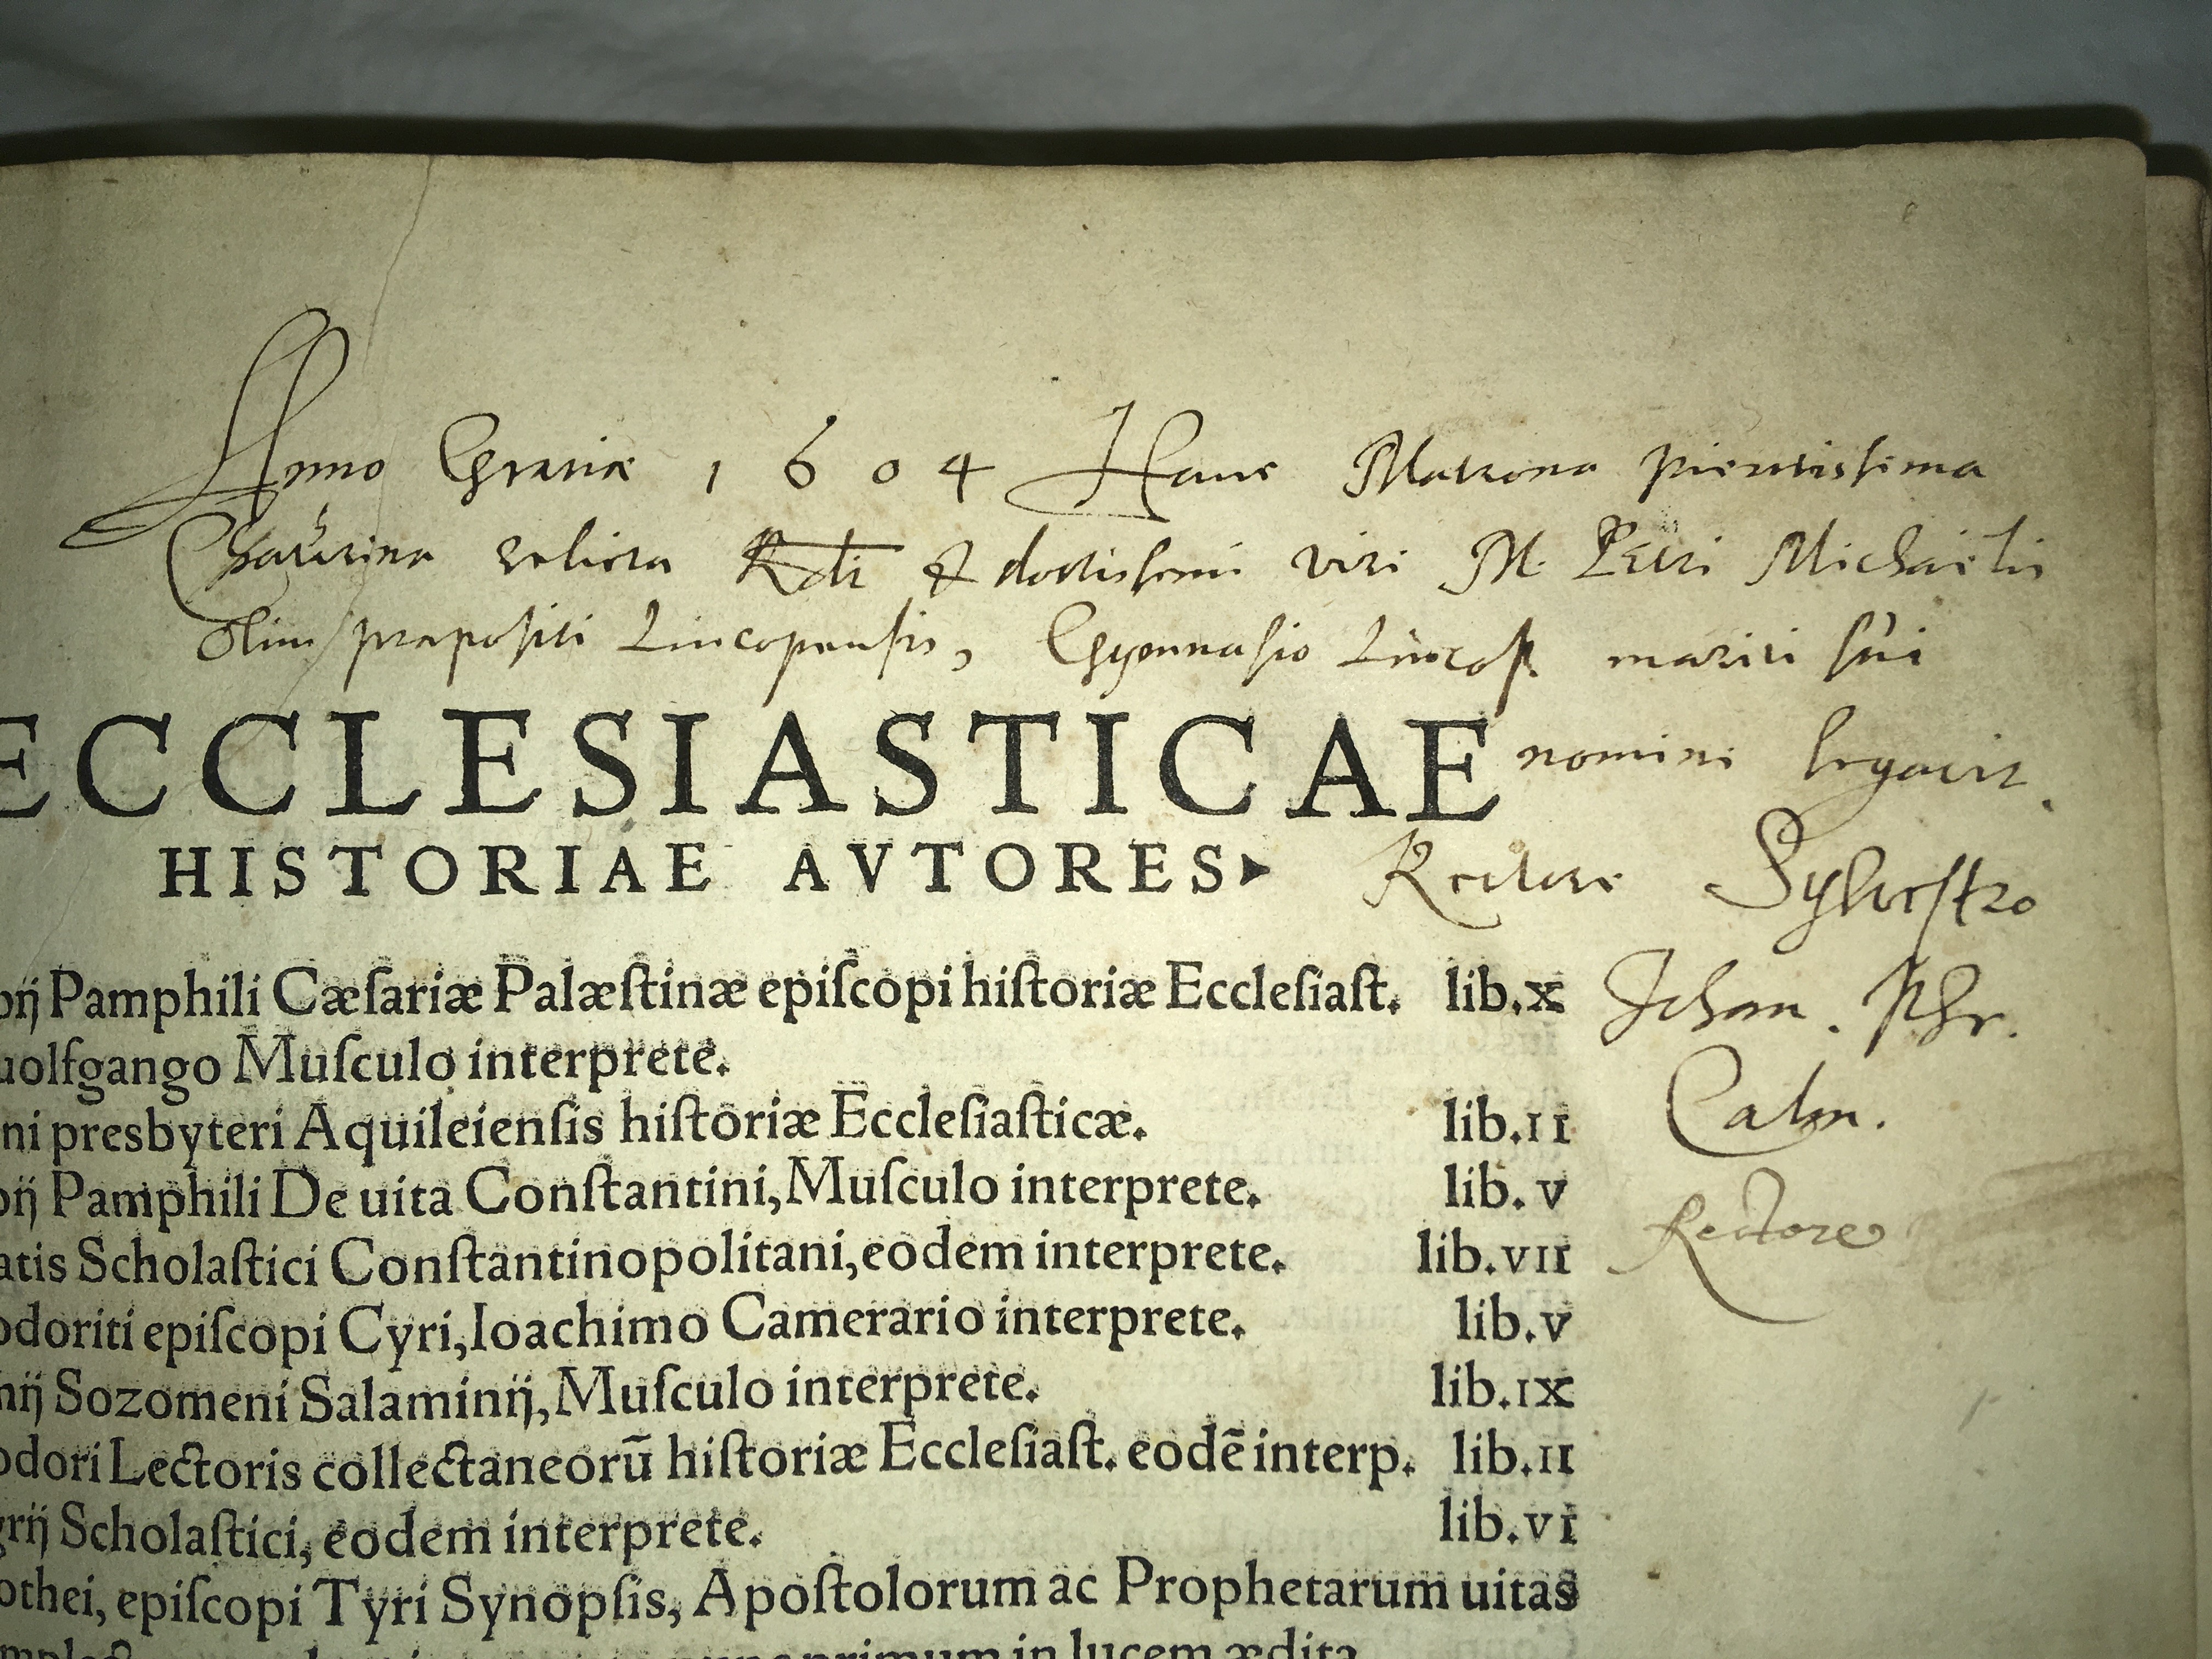 Anno Gratiæ 1604 Hanc Matrona pientissima
Chatarina relicta Rdi & doctissimi viri M. Petri Michaelis
olim præpositi Lincopensis, Gymnasio Lincop. mariti sui
ECCLESIASTICAE nomine legavit.
HISTORIAE AVTORES Rectore Sylvestro
orĳ Pamphili Cæſariæ Palæſtinæ epiſcopi hiſtoriæ Eccleſiaſt. lib.X Johan. Phr.
uolfgango Muſculo interprete.
Calm.
ni presbyteri Aquileienſis hiſtoriæ Eccleſiaſticæ. lib.II
orĳ Pamphili De uita Conſtantini, Muſculo interprete. lib. V
Rectore
atis Scholaſtici Conſtantinopolitani, eodem interprete. lib.VII
odoriti epiſcopi Cyri, Ioachimo Camerario interprete. lib.V
nĳ Sozomeni Salaminĳ, Muſculo interprete. lib.IX
odori Lectoris collectaneorū hiſtoriæ Eccleſiaſt. eodē interp. lib.II
grĳ Scholaſtici, eodem interprete. lib.VI
othei, epiſcopi Tyri Synopſis, Apoſtolorum ac Prophetarum uitas
primum in lucem ædita